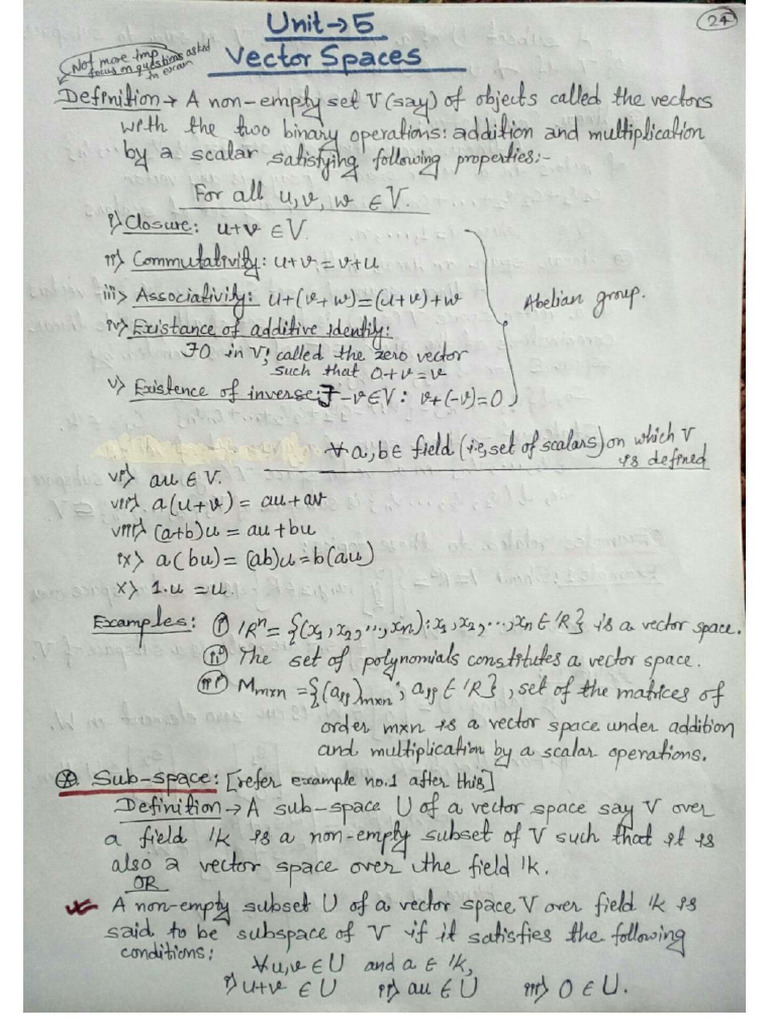 24
Unit→5
Vector Spaces
Not more imp
focus on questions asked
in exam
Definition → A non-empty set V (say) of objects called the vectors
with the two binary operations: addition and multiplication
by a scalar satisfying following properties:-
For all u, v, w ∈ V.
i) Closure: u+v ∈ V
ii) Commutativity: u+v = v+u
iii) Associativity: u+(v+w)=(u+v)+w
Abelian group.
iv) Existance of additive identity:
∃ 0 in V; called the zero vector
such that 0+v=v
v) Existence of inverse: ∃ -v∈V: v+(-v)=0
∀ a,b ∈ field (i.e, set of scalars) on which V
is defined
vi) au ∈ V.
vii) a(u+v) = au+av
viii) (a+b)u = au+bu
ix) a(bu) = (ab)u = b(au)
x) 1.u = u.
Examples: (i) IRⁿ = {(x₁, x₂, .., xₙ): x₁, x₂, ..., xₙ ∈ IR} is a vector space.
(ii) The set of polynomials constitutes a vector space.
(iii) Mₘₓₙ = {(aᵢⱼ)ₘₓₙ; aᵢⱼ ∈ IR}, set of the matrices of
order mxn is a vector space under addition
and multiplication by a scalar operations.
Sub-space: [refer example no.1 after this]
Definition → A sub-space U of a vector space say V over
a field Ik is a non-empty subset of V such that it is
also a vector space over the field Ik.
OR
A non-empty subset U of a vector space V over field Ik is
said to be subspace of V if it satisfies the following
conditions:
∀ u,v ∈ U and a ∈ Ik,
i) u+v ∈ U ii) au ∈ U iii) 0 ∈ U.